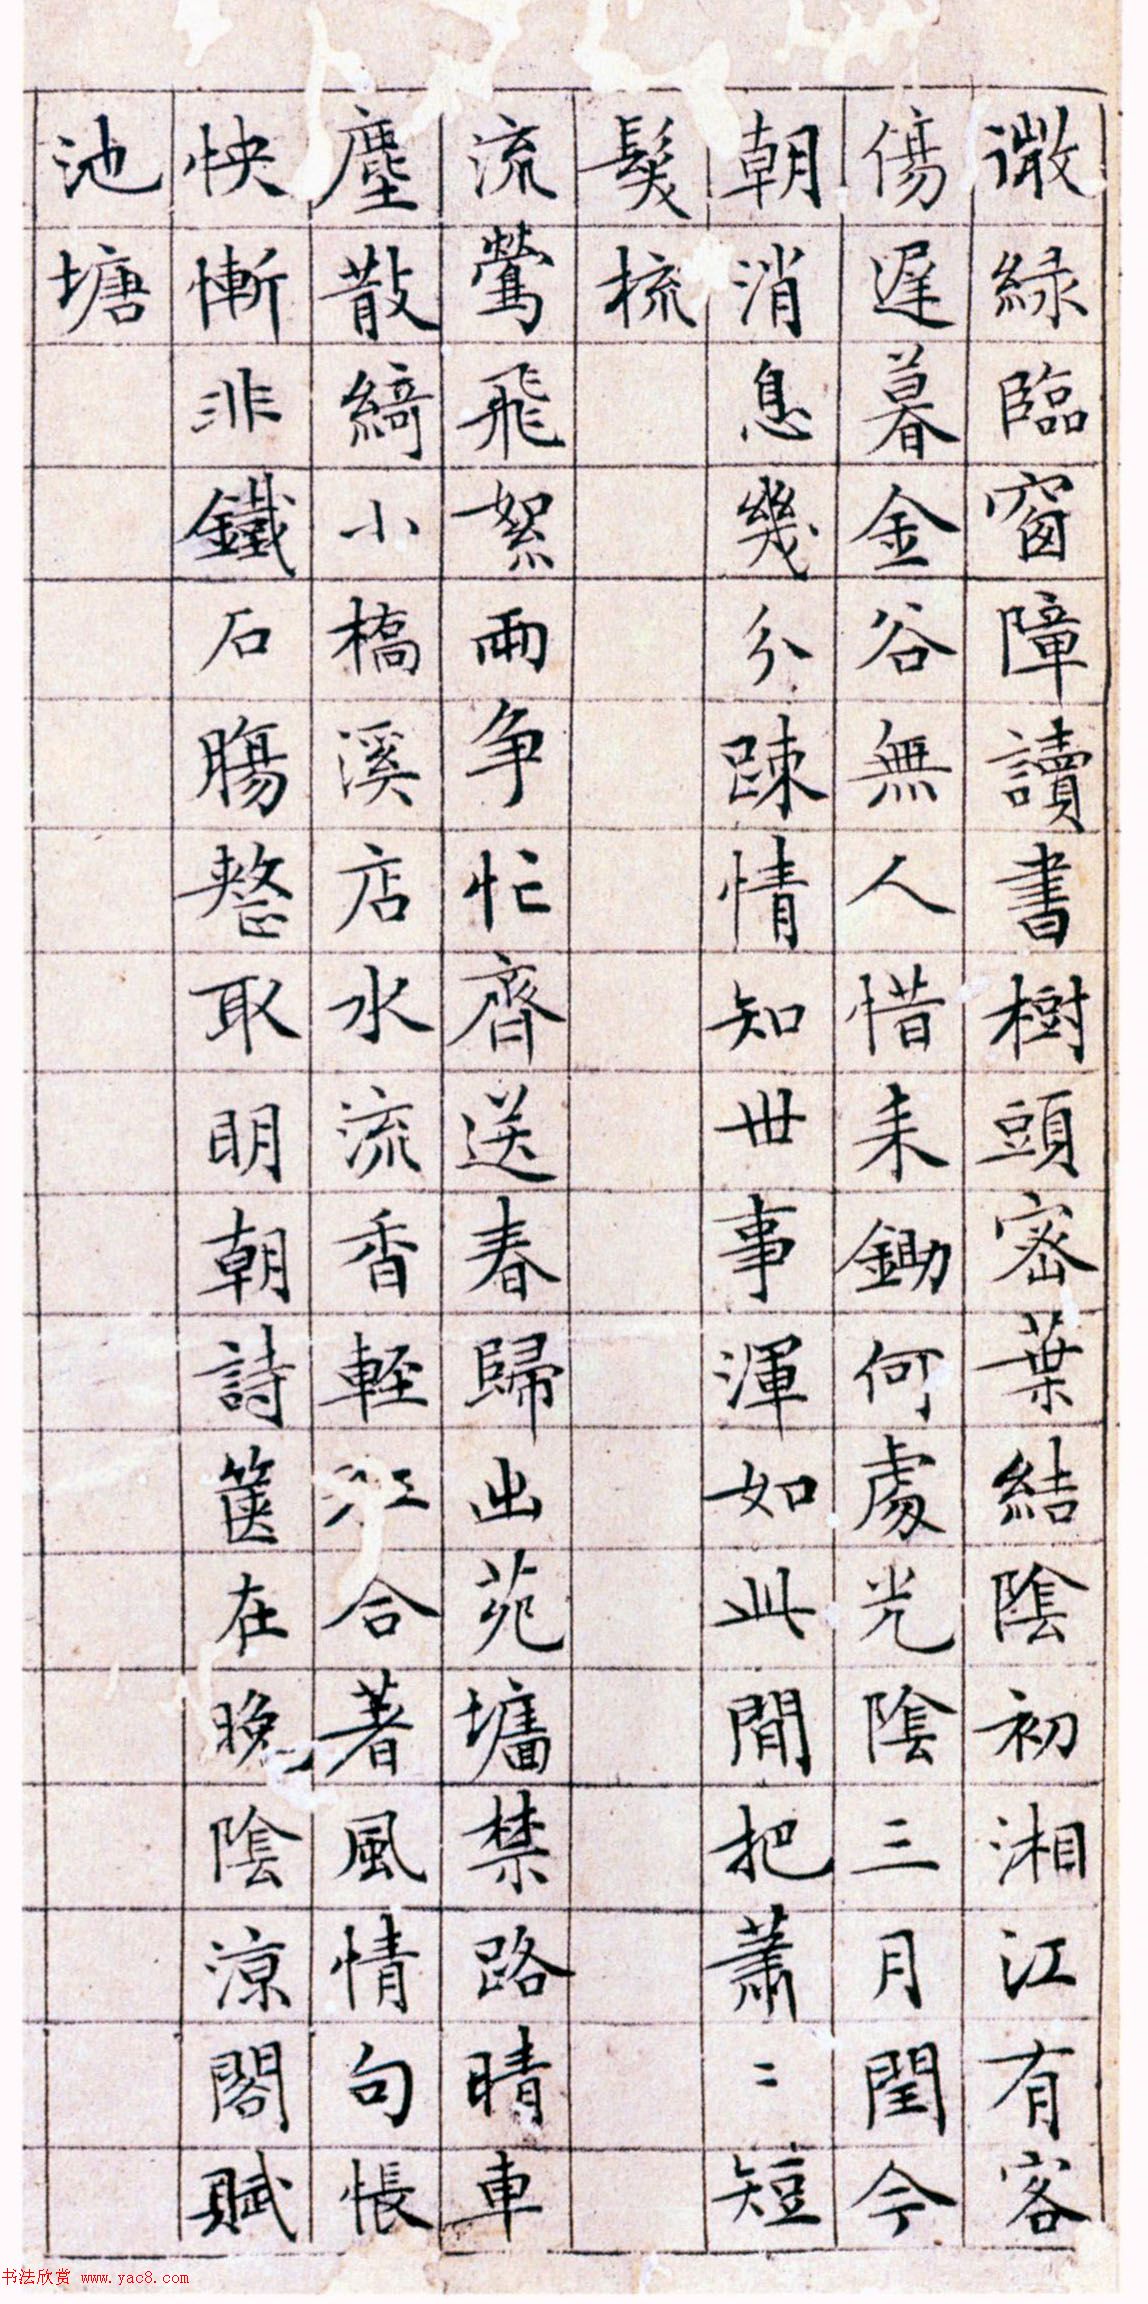 微綠臨窗障讀書樹頭密葉結陰初湘江有客
傷遲暮金谷無人惜耒鋤何處光陰三月閏今
朝消息幾分踈情知世事渾如此閒把蕭〻短
髮梳
流鶯飛絮兩争忙齊送春歸出苑墻禁路晴車
塵散綺小橋溪店水流香輕江合著風情句悵
怏慚非鐵石腸整取明朝詩篋在晚陰涼閣賦
池塘
书法欣赏 www.yac8.com